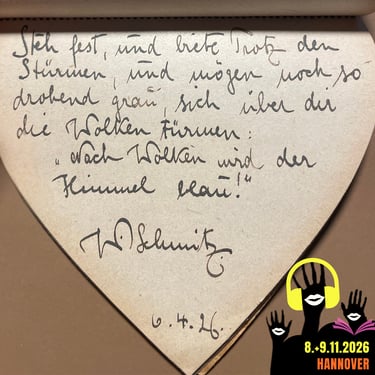 Steh fest, und biete Trotz den
Stürmen, und mögen noch so
drohend grau, sich über dir
die Wolken türmen:
"Nach Wolken wird der
Himmel blau!"
W. Schmitz.
6.4.26.
8.+9.11.2026
HANNOVER